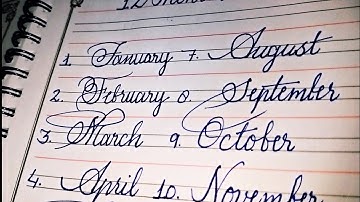 12
1. January 7. August
2. February 8. September
3. March 9. October
4. April 10. November